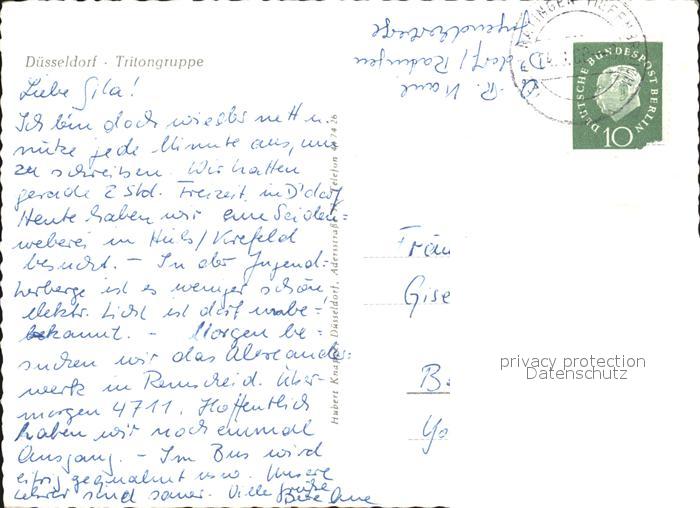 Düsseldorf · Tritongruppe
Liebe Gila!
Ich bin doch wieder nett u.
nütze jede Minute aus, um
zu schreiben. Wir hatten
gerade 2 Std. Freizeit in D'dorf
Heute haben wir eine Seiden=
weberei in Hüls/Krefeld
besucht. - In der Jugend=
herberge ist es weniger schön
elektr. Licht ist dort unbe=
kannt. - Morgen be=
suchen wir das Alexander=
werk in Remscheid. Über=
morgen 4711. Hoffentlich
haben wir noch einmal
Ausgang. - Im Bus wird
eifrig gequalmt usw. Unsere
Lehrer sind sauer. Viele Grüße
Deine
Hubert Knapp, Düsseldorf, Adersstraße, Telefon
R.
D'dorf/Ratingen
Jugendherberge
RATINGEN
DEUTSCHE BUNDESPOST BERLIN
10
Fräu
Gise
B.
privacy protection
Datenschutz